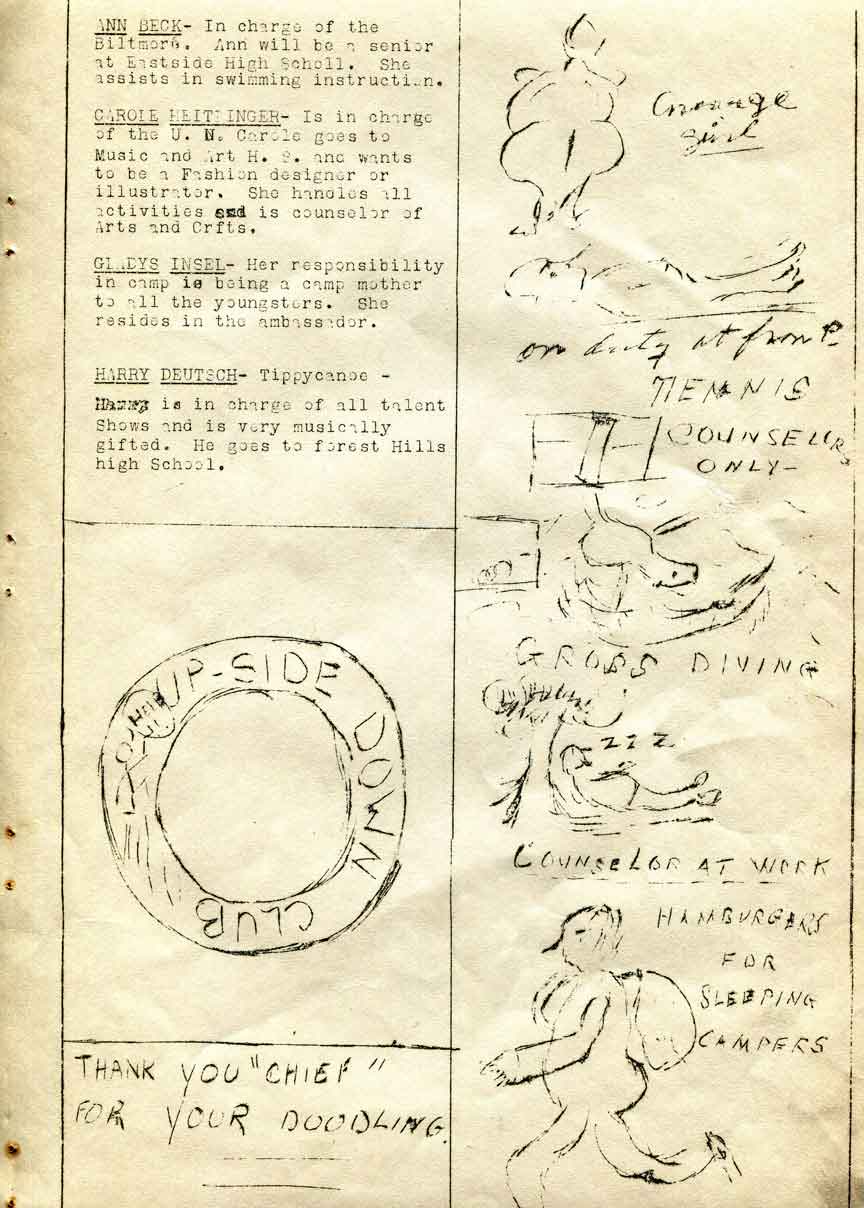 ANN BECK- In charge of the
Biltmore. Ann will be a senior
at Eastside High Scholl. She
assists in swimming instruction.
CAROLE HEITLINGER- Is in charge
of the U. N. Carole goes to
Music and Art H. S. and wants
to be a Fashion designer or
illustrator. She handles all
activities and is counselor of
Arts and Crfts.
GLADYS INSEL- Her responsibility
in camp is being a camp mother
to all the youngsters. She
resides in the ambassador.
HARRY DEUTSCH- Tippycanoe -
Harry is in charge of all talent
Shows and is very musically
gifted. He goes to forest Hills
high School.
UP-SIDE DOWN CLUB
THANK YOU "CHIEF"
FOR YOUR DOODLING.
girl
on duty at front
TENNIS
COUNSELORS
ONLY-
GROSS DIVING
ZZZ
COUNSELOR AT WORK
HAMBURGERS
FOR
SLEEPING
CAMPERS